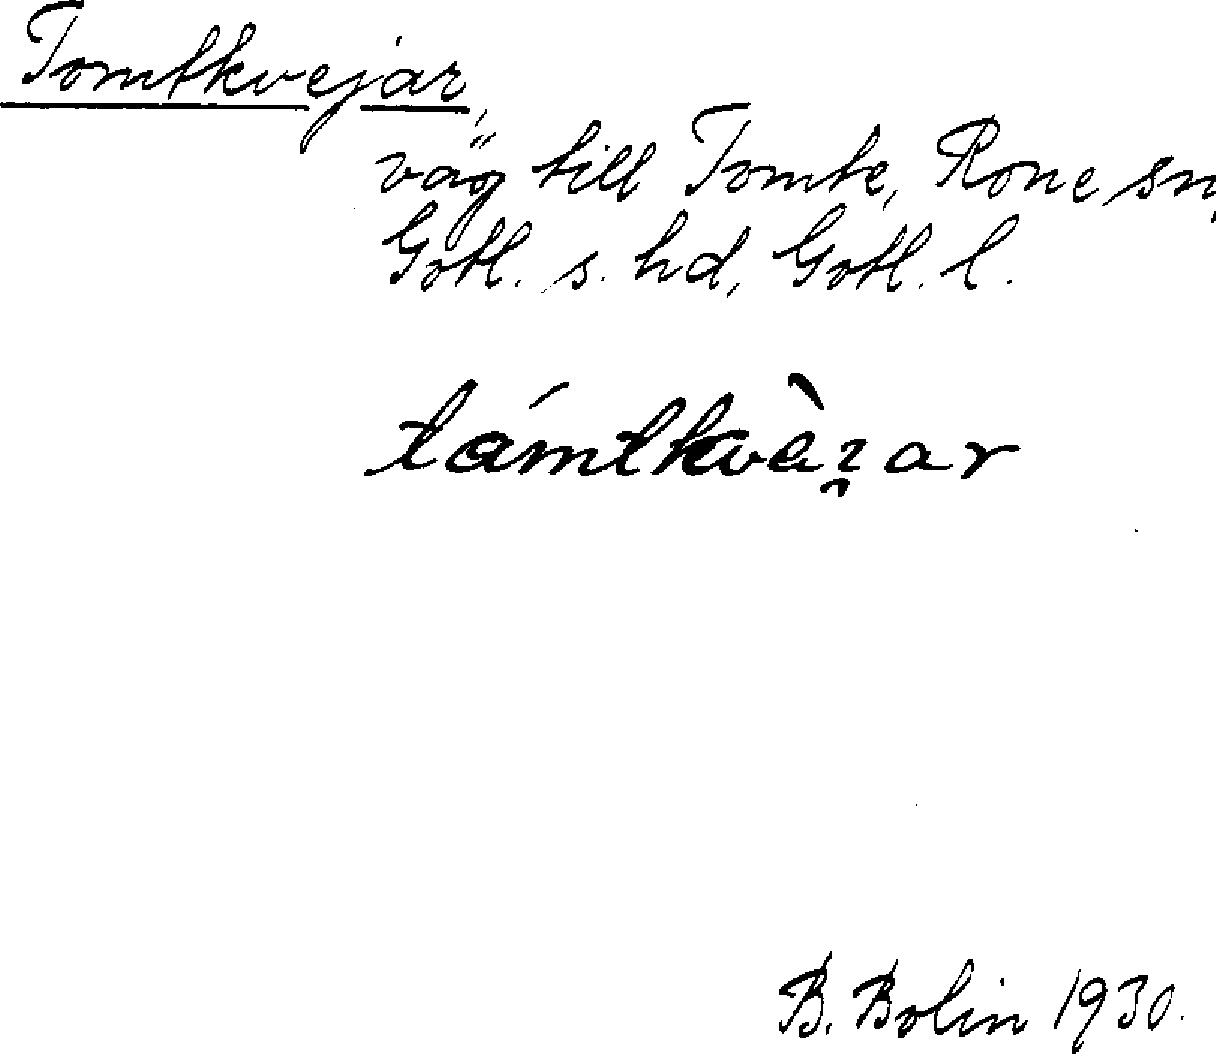 Tomtkvejar,
väg till Tomte, Rone sn,
Gotl. s. hd, Gotl. l.
B. Bolin 1930.